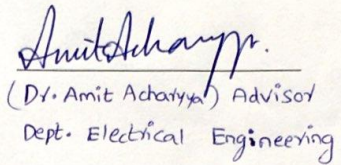 Amit Acharyya.
(Dr. Amit Acharyya) Advisor
Dept. Electrical Engineering